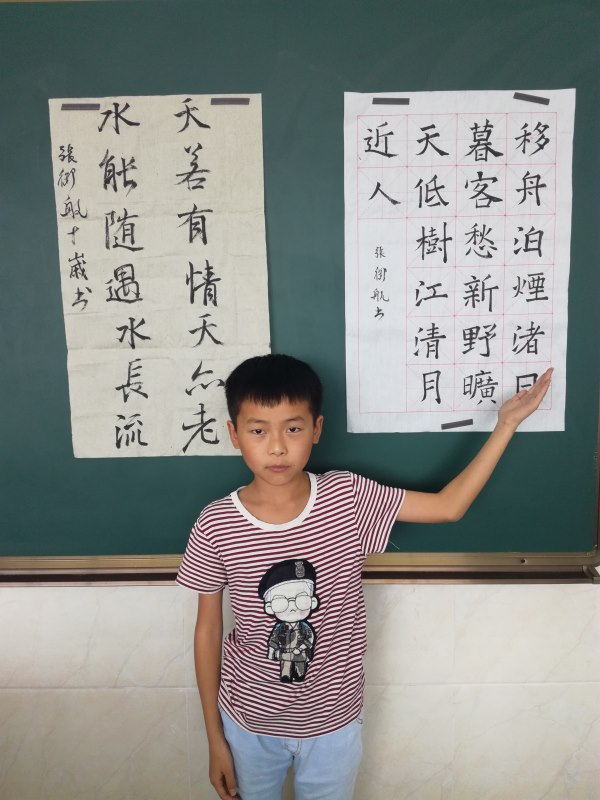 移舟泊煙渚日
暮客愁新野曠
天低樹江清月
近人
張御航书
天若有情天亦老
水能随遇水長流
張御航十歲书